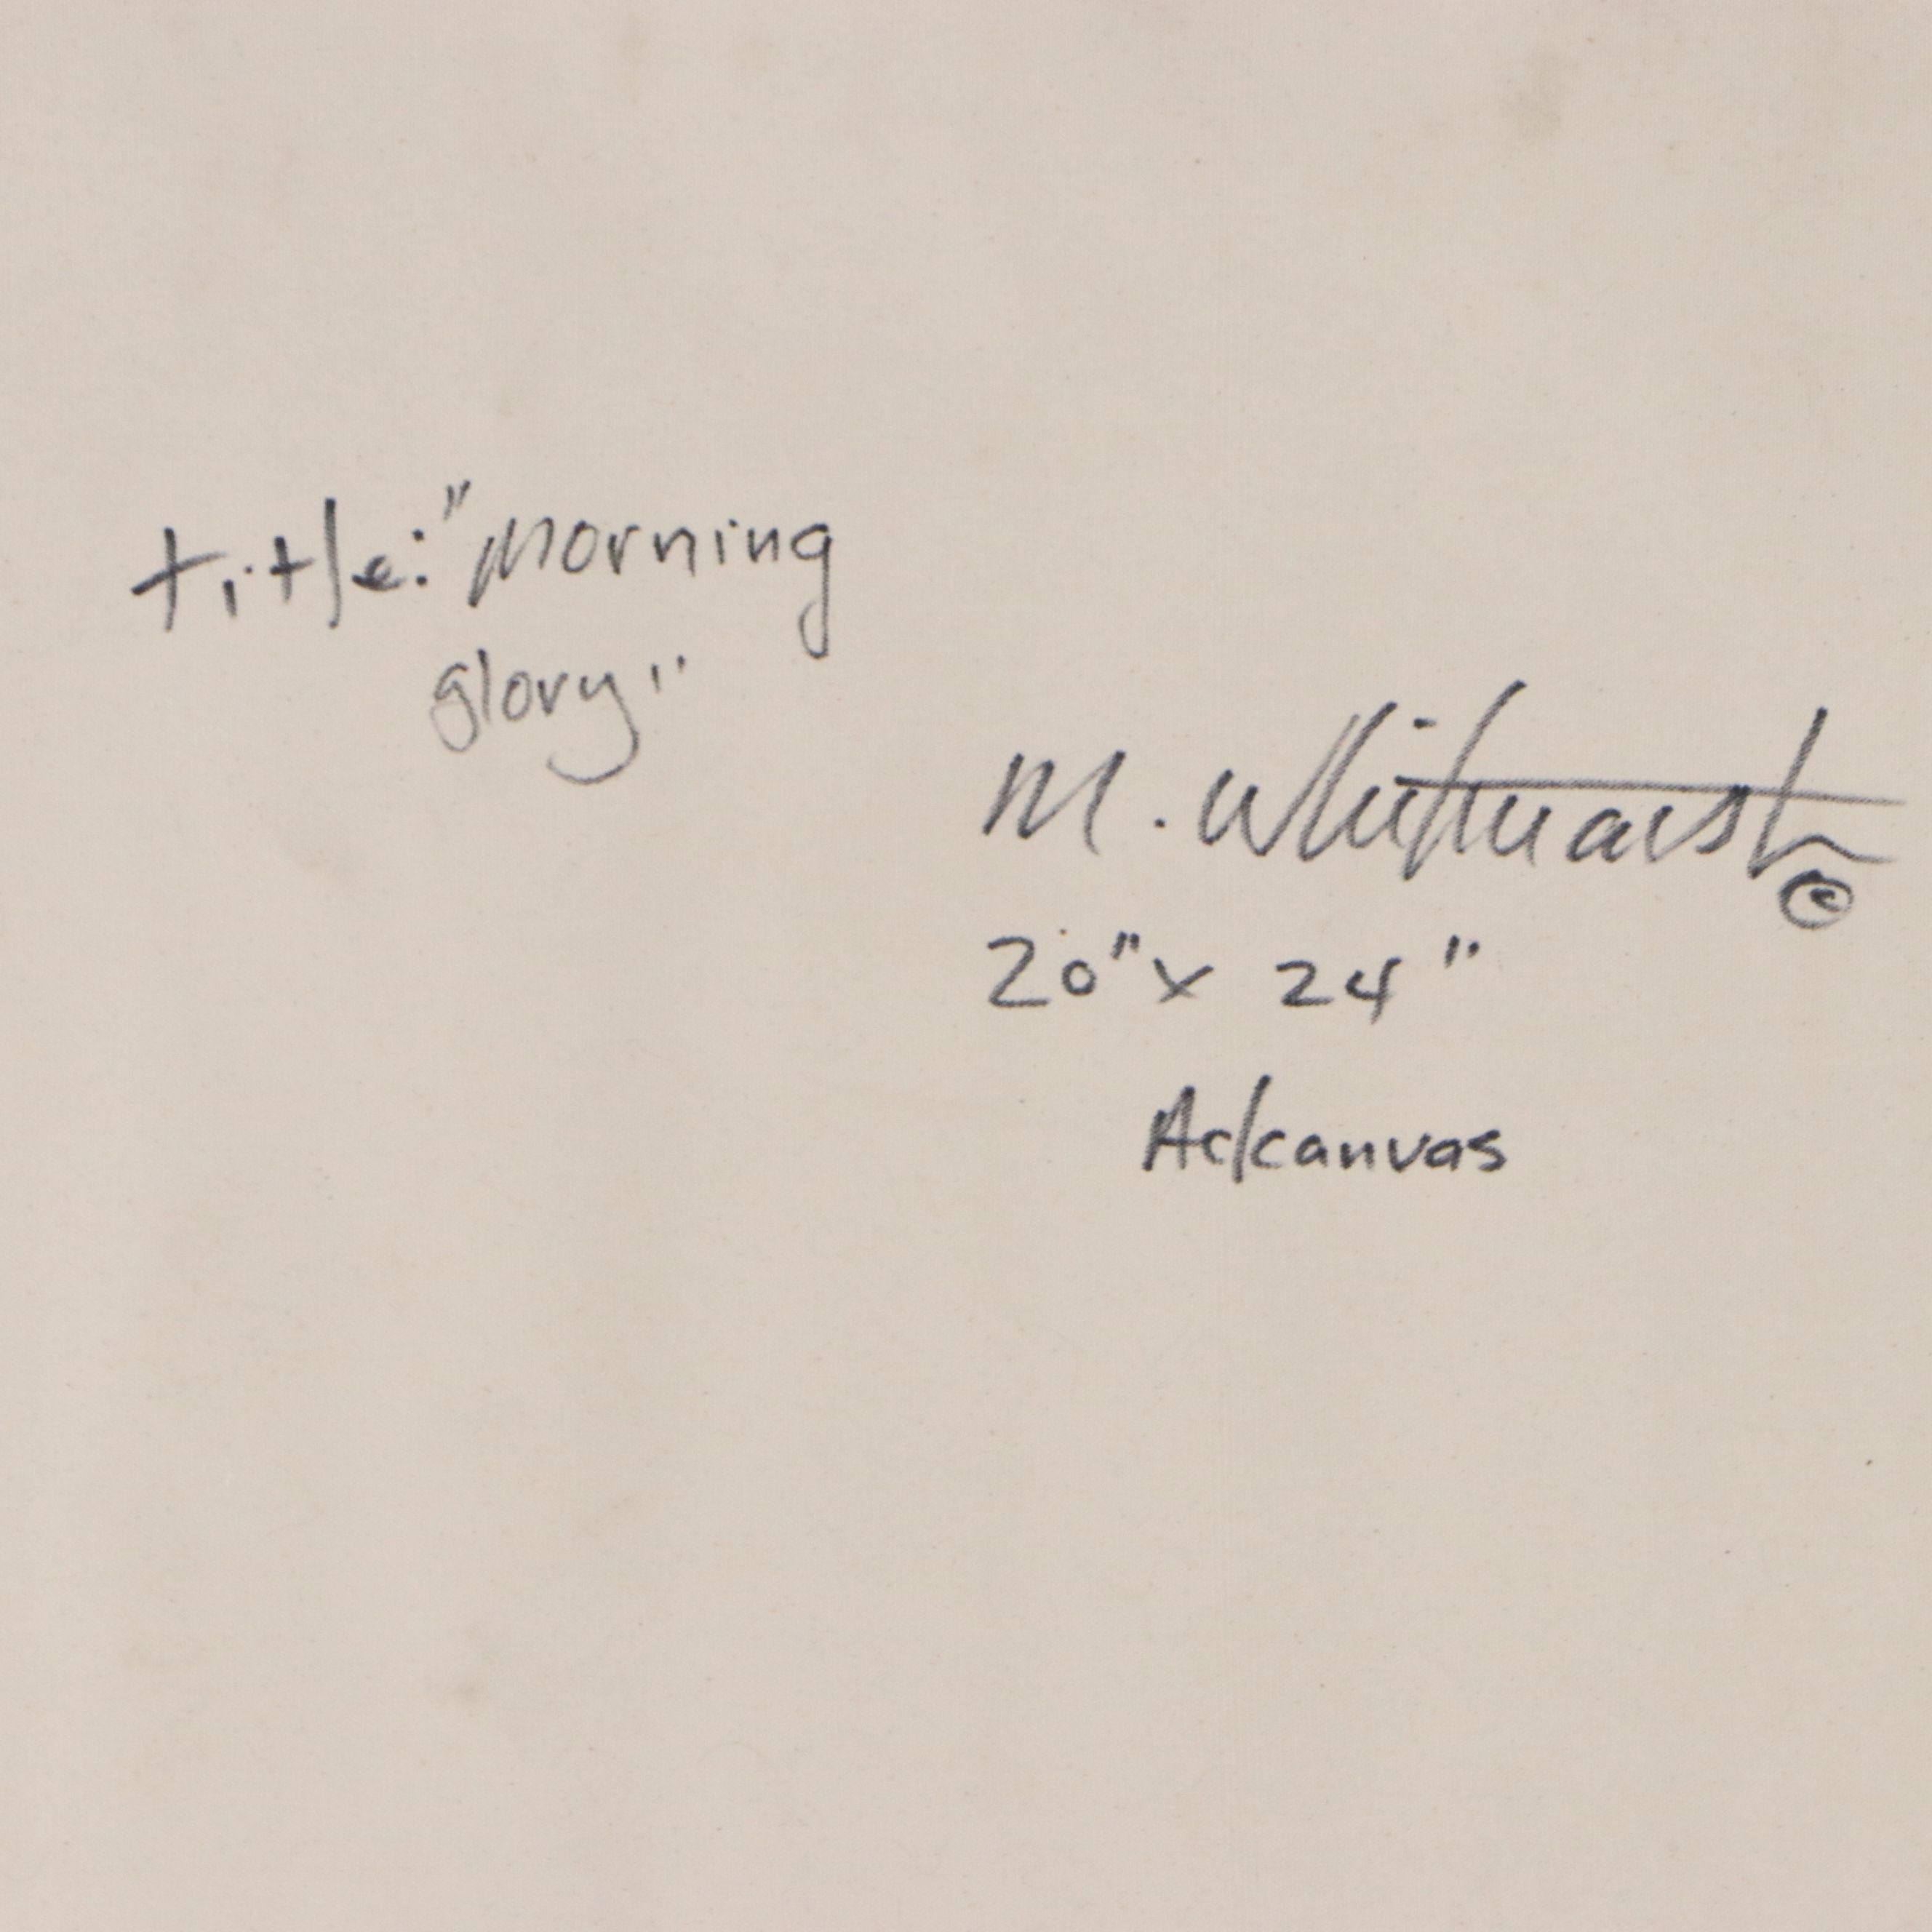 title: "Morning
glory"
M. Whitehurst ©
20" x 24"
Ac/canvas